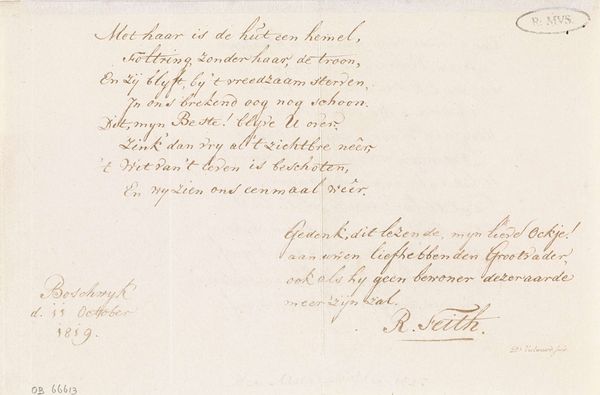 R. MVS.
Met haar is de hut een hemel,
Foltring, zonder haar de troon,
En zij blyft, by 't vreedzaam sterven,
In ons brekend oog nog schoon.
Dit, myn Beste! blyve U over.
Zink' dan vry al 't zichtbre nêer,
't Wit van 't leven is beschoten,
En wy zien ons eenmaal wêer.
Gedenk, dit lezende, myn lieve Ockje!
aan uwen liefhebbenden Grootvader,
ook als hy geen bewoner dezer aarde
meer zyn zal.
R. Feith.
Boschwyk
d. 11 October
1819.
OB 66613